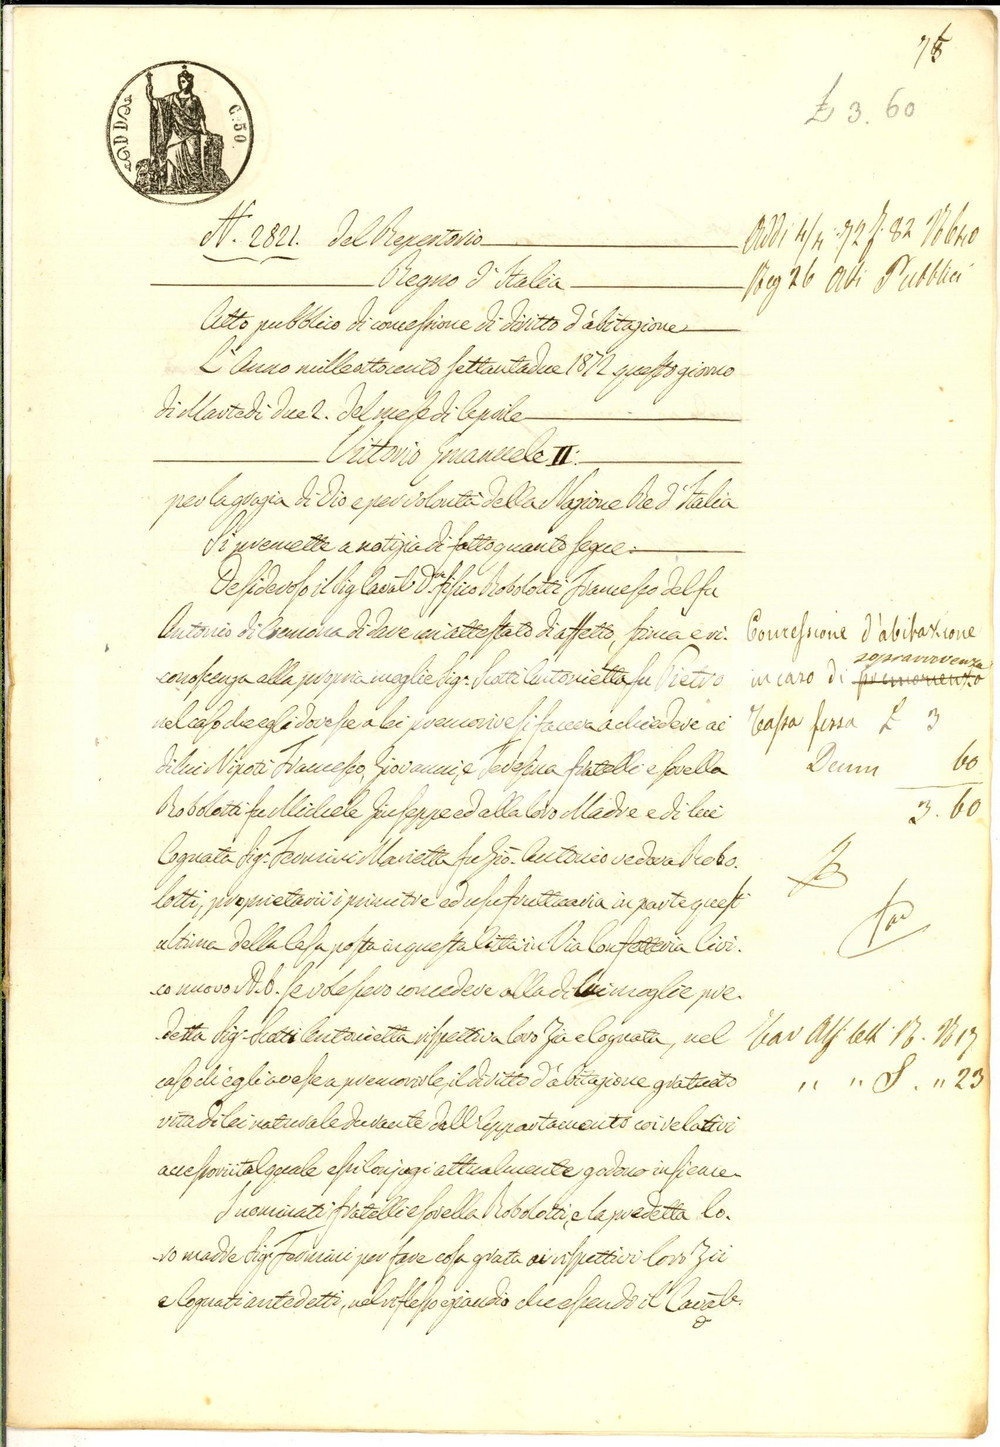 78
£ 3. 60
C. 50
N. 2821. del Repertorio
Regno d'Italia
Atto pubblico di concessione di diritto d'abitazione
L'Anno milleottocento settantadue 1872 questo giorno
di Martedi due 2. del mese di Aprile
Vittorio Emanuele II.
per la grazia di Dio e per volontà della Nazione Re d'Italia
Si premette a notizia di fatto quanto segue:
Desideroso il Sig. Cav. Dr. fisico Robolotti Francesco del fu
Antonio di Cremona di dare un attestato di affetto, stima e ri-
conoscenza alla propria moglie Sig.ª Scatti Antonietta fu Pietro
nel caso che egli dovesse a lei premorire si faceva a chiedere ai
di lui Nipoti Francesco, Giovanni, e Teresina fratelli e sorella
Robolotti fu Michele Giuseppe ed alla loro Madre e di lui
Cognata Sig.ª Fermini Marietta fu Gio. Antonio vedova Robo-
lotti, proprietarii i primi tre ed usufruttuaria in parte quest'
ultima della Casa posta in questa Città in Via Confetteria Civi-
co nuovo N. 6. se volessero concedere alla di lui moglie pre-
detta Sig.ª Scatti Antonietta rispettiva loro Zia e Cognata, nel
caso ch'egli avesse a premorirle, il diritto d'abitazione gratuito
vita di lei naturale durante dell'Appartamento coi relativi
accessorii tal quale essi Conjugi attualmente godono insieme.
I nominati fratelli e sorella Robolotti, e la predetta lo-
ro madre Sig.ª Fermini per fare cosa grata ai rispettivi loro Zii
e Cognati antedetti, nel riflesso eziandio che essendo il Caval.
Addi 4/4 72 f. 82 N 640
Reg 26 Atti Pubblici
Concessione d'abitazione
in caso di sopravvivenza premorienza
Tassa fissa £ 3
Decimi 60
3. 60
Tav Alf lett. R. N 17
" " S. " 23